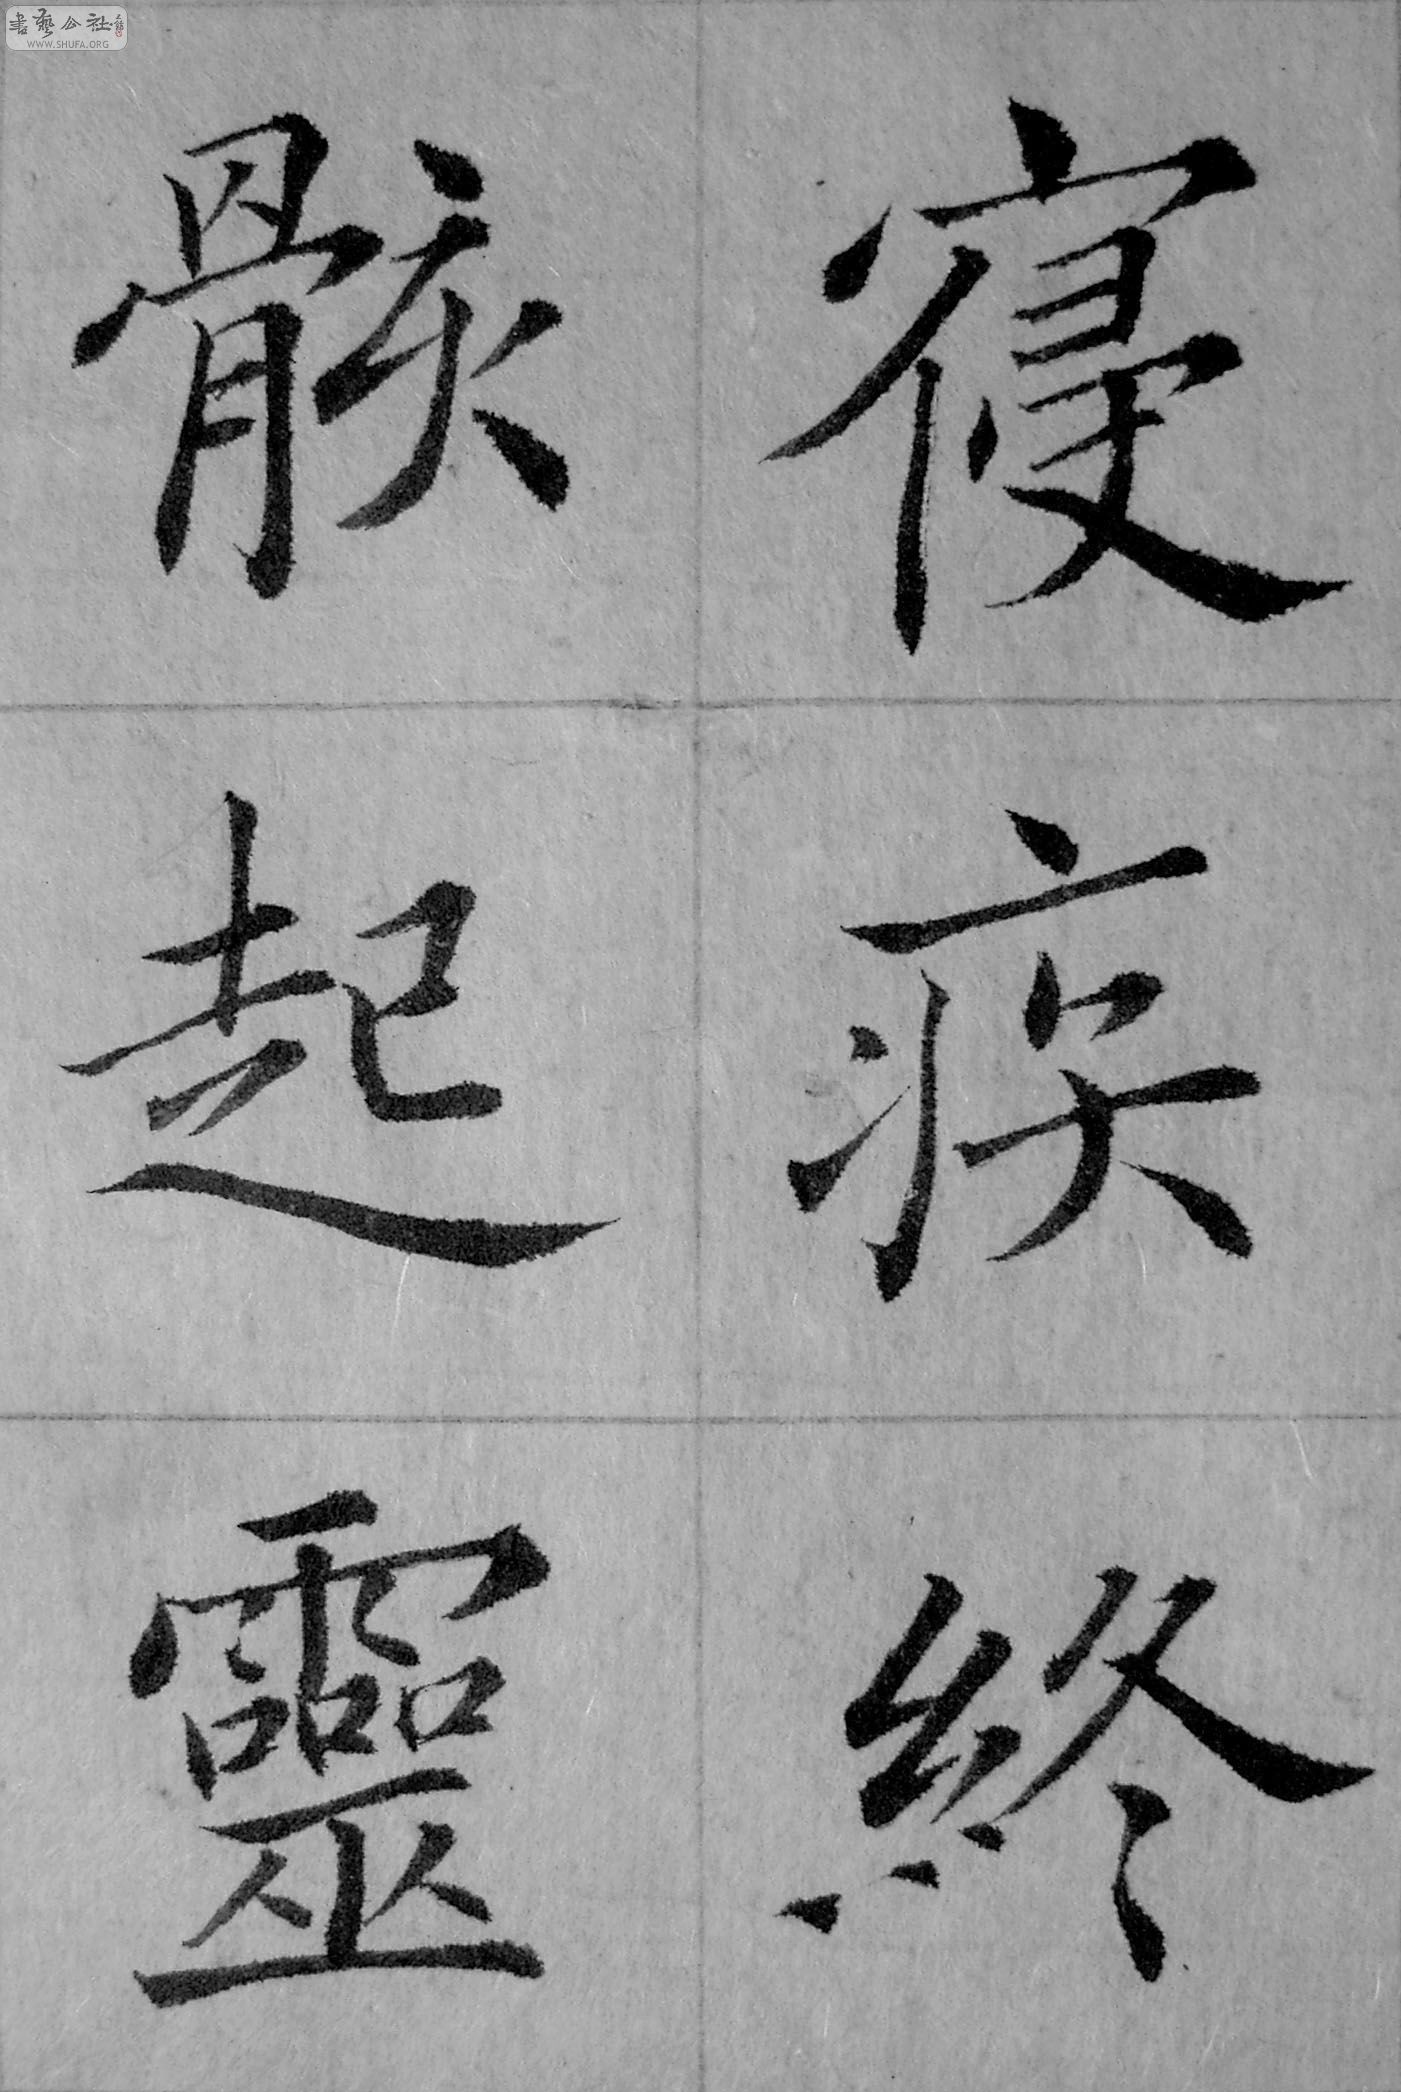 書藝公社
WWW.SHUFA.ORG
寑疾終
骸起靈